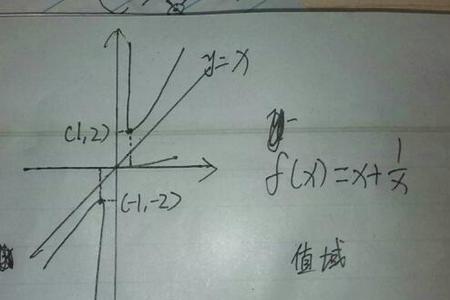 y=x
(1,2)
f(x)=x+\frac{1}{x}
(-1,-2)
值域